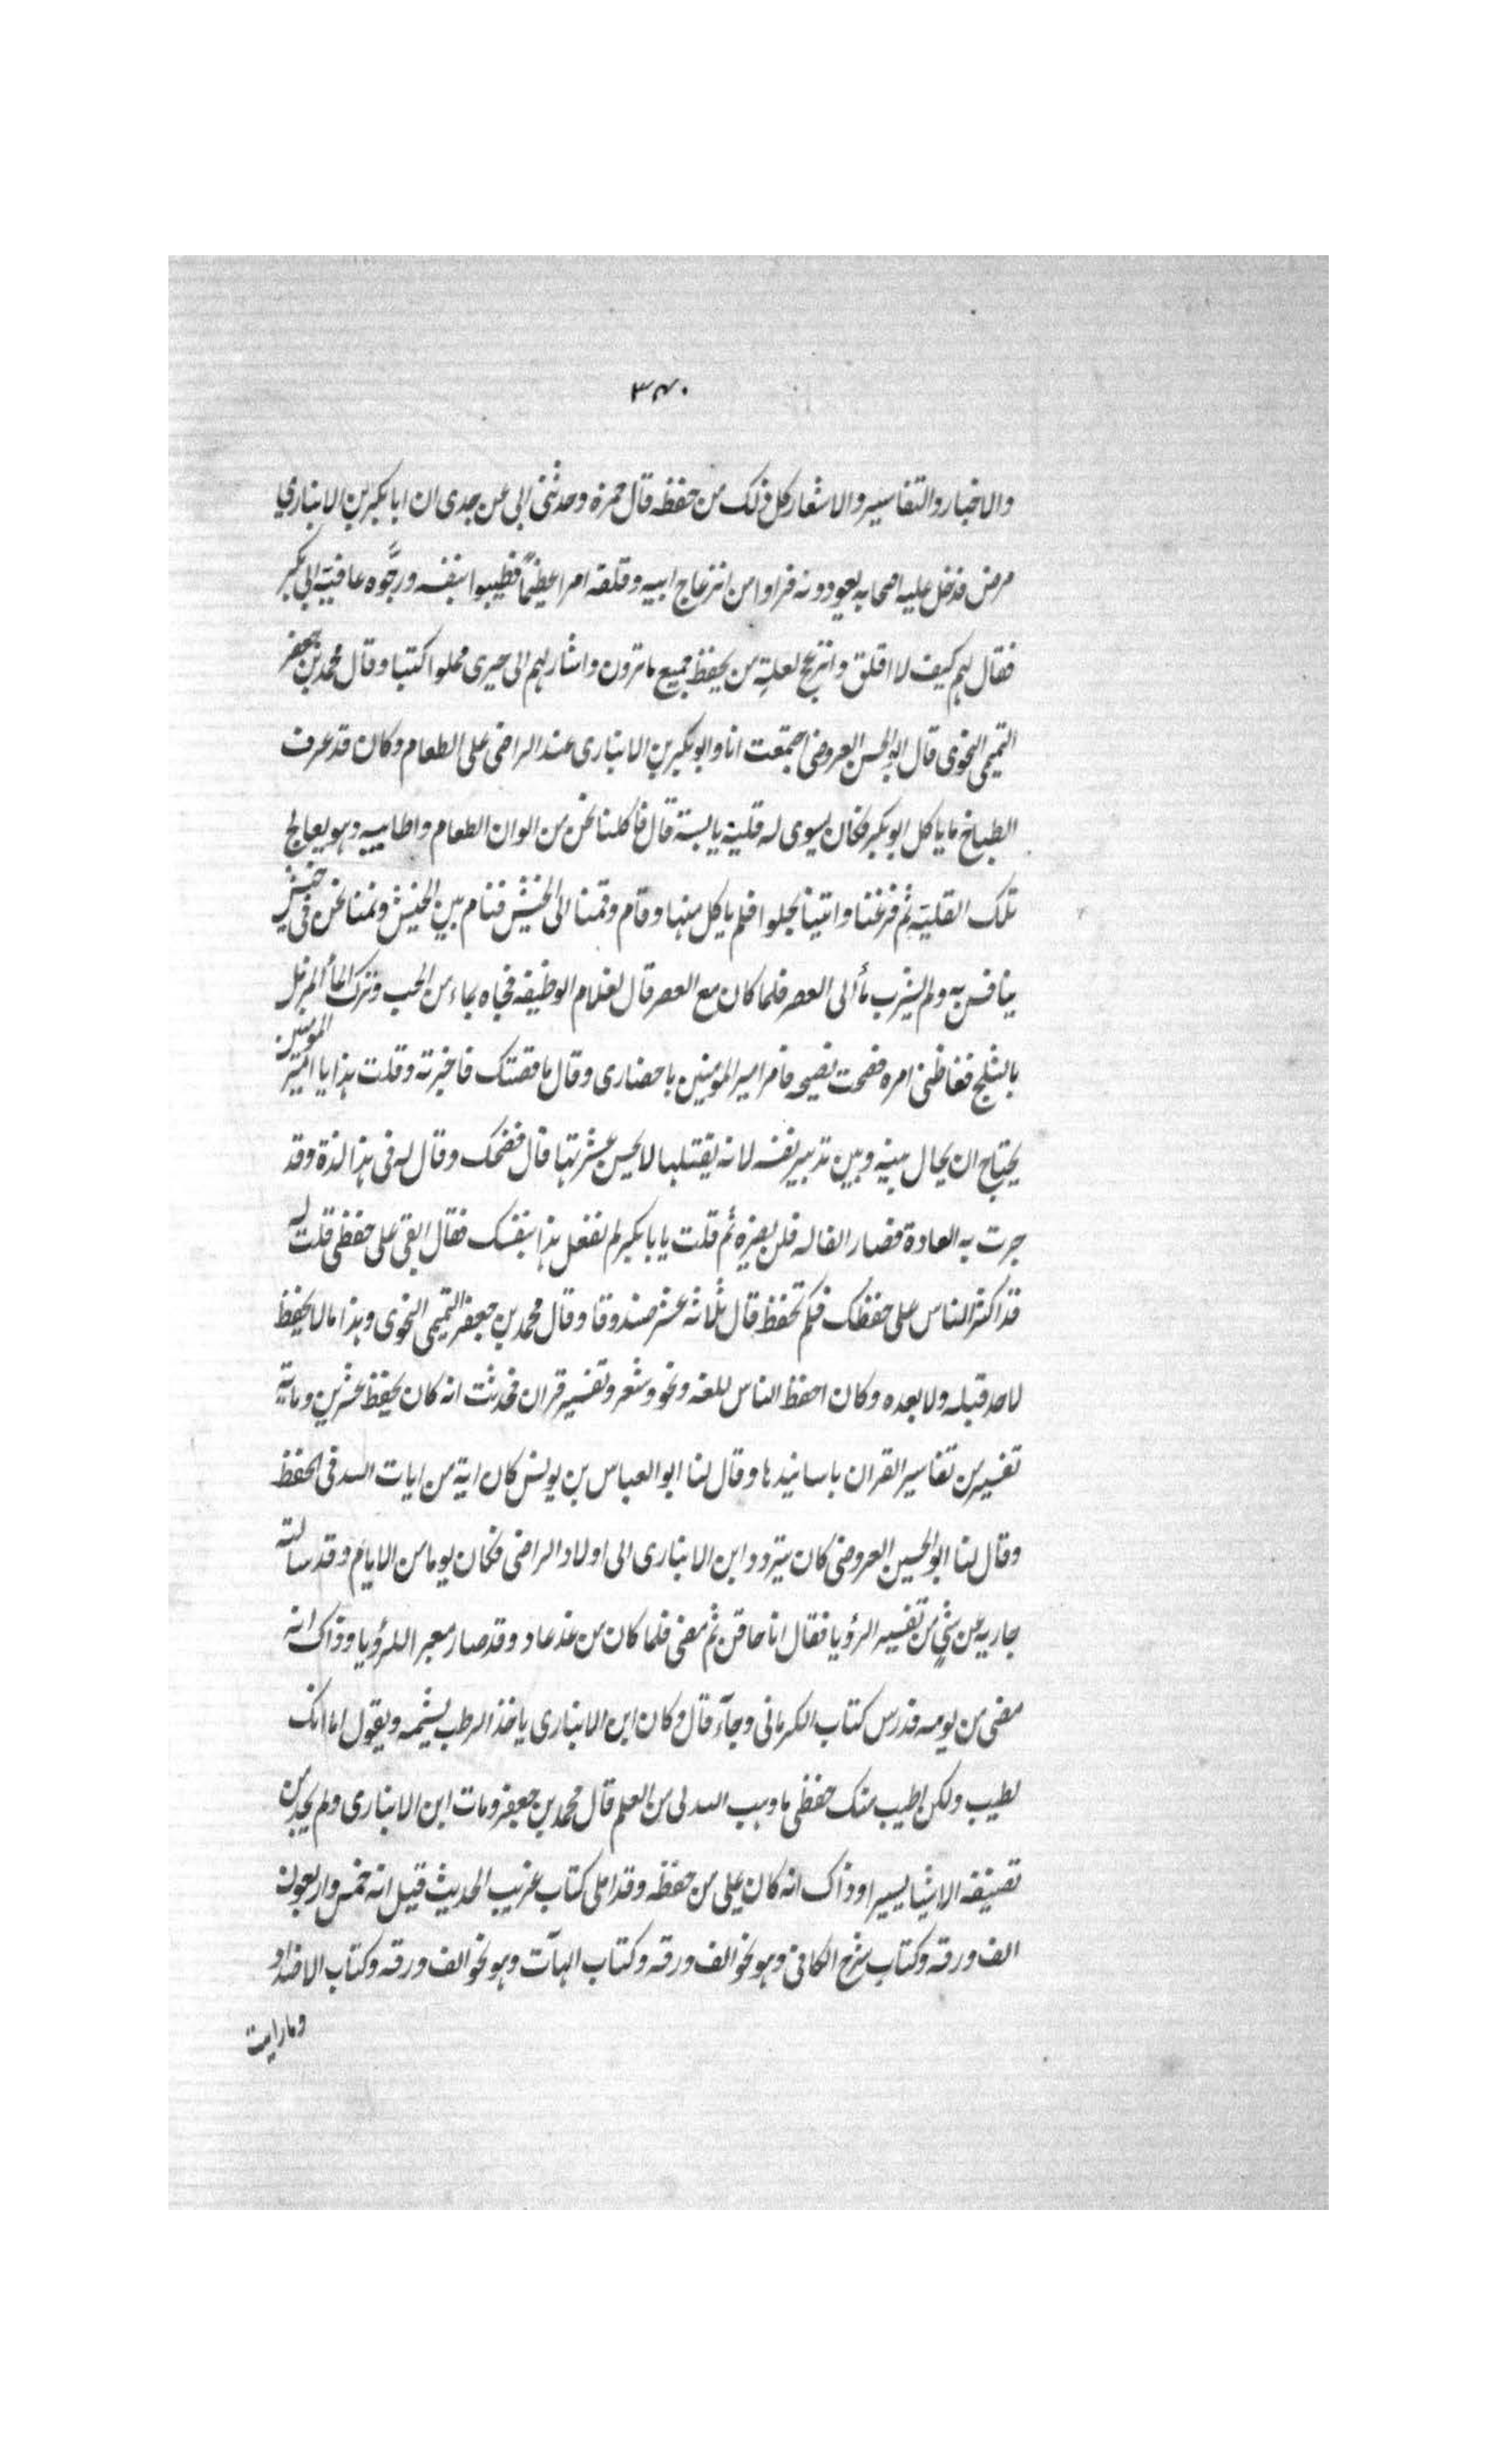 ٣٤٠
والاخبار والتفاسير والاشعار كل ذلك من حفظه قال حمزة وحدثنى ابى عن جدى ان ابا بكر بن الانباري
مرض فدخل عليه اصحابه يعودونه فراوا من انزعاج ابيه وقلقه امرا عظيمًا فطيبوا نفسه ورجَّوه عافية ابى بكر
فقال لهم كيف لا اقلق وانزعج لعلة من يحفظ جميع ما ترون واشار لهم الى حيرى مملوا كتبا وقال محمد بن جعفر
التميمى النحوى قال ابو الحسن العروضى اجتمعت انا وابو بكر بن الانبارى عند الراضى على الطعام وكان قد عرف
الطباخ ما ياكل ابو بكر فكان يسوى له قلية يابسة قال فاكلنا نحن من الوان الطعام واطايبه وهو يعالج
تلك القلية ثم فرغنا واتينا بحلوا فلم ياكل منها وقام وقمنا الى الخيش فنام بين الخيش ونمنا نحن فى خيش
ينافس به ولم يشرب مأ الى العصر فلما كان مع العصر قال لغلام الوظيفه فجاه بماء من الحب وترك الماأ المزمل
بالثلج فغاظنى امره فصحت بصيحه فامر امير المومنين باحضارى وقال ما قصتك فاخبرته وقلت هذا يا امير المومنين
يحتاج ان يحال بينه وبين تدبير نفسه لانه يقتلها لا يحسن عشرتها قال فضحك وقال له فى هذا لذة وقد
جرت به العادة فصار الفا له فلن يضره ثم قلت يا با بكر لم تفعل هذا بنفسك فقال ابقى على حفظى قلت له
قد اكثر الناس على حفظك فكم تحفظ قال ثلاثة عشر صندوقا وقال محمد بن جعفر التميمى النحوى وهذا ما لا يحفظ
لاحد قبله ولا بعده وكان احفظ الناس للغه ونحو وشعر وتفسير قران فحدثت انه كان يحفظ عشرين وماية
تفسير من تفاسير القران باسانيدها وقال لنا ابو العباس بن يونس كان اية من ايات الله فى الحفظ
وقال لنا ابو الحسين العروضى كان يتردد ابن الانبارى الى اولاد الراضى فكان يوما من الايام وقد سالته
جاريه عن شئ من تفسير الرؤيا فقال انا حاقن ثم مضى فلما كان من غد عاد وقد صار معبرا للرؤيا وذاك انه
مضى من يومه فدرس كتاب الكرمانى وجآء قال وكان ابن الانبارى ياخذ الرطب يشمه ويقول اما انك
لطيب ولكن اطيب منك حفظى ما وهب الله لى من العلم قال محمد بن جعفر ومات ابن الانبارى ولم يجد من
تصنيفه الا شيا يسيرا وذاك انه كان يملى من حفظه وقد املى كتاب غريب الحديث قيل انه خمس واربعون
الف ورقه وكتاب شرح الكافى وهو نحو الف ورقه وكتاب الهآت وهو نحو الف ورقه وكتاب الاضداد
وما رايت